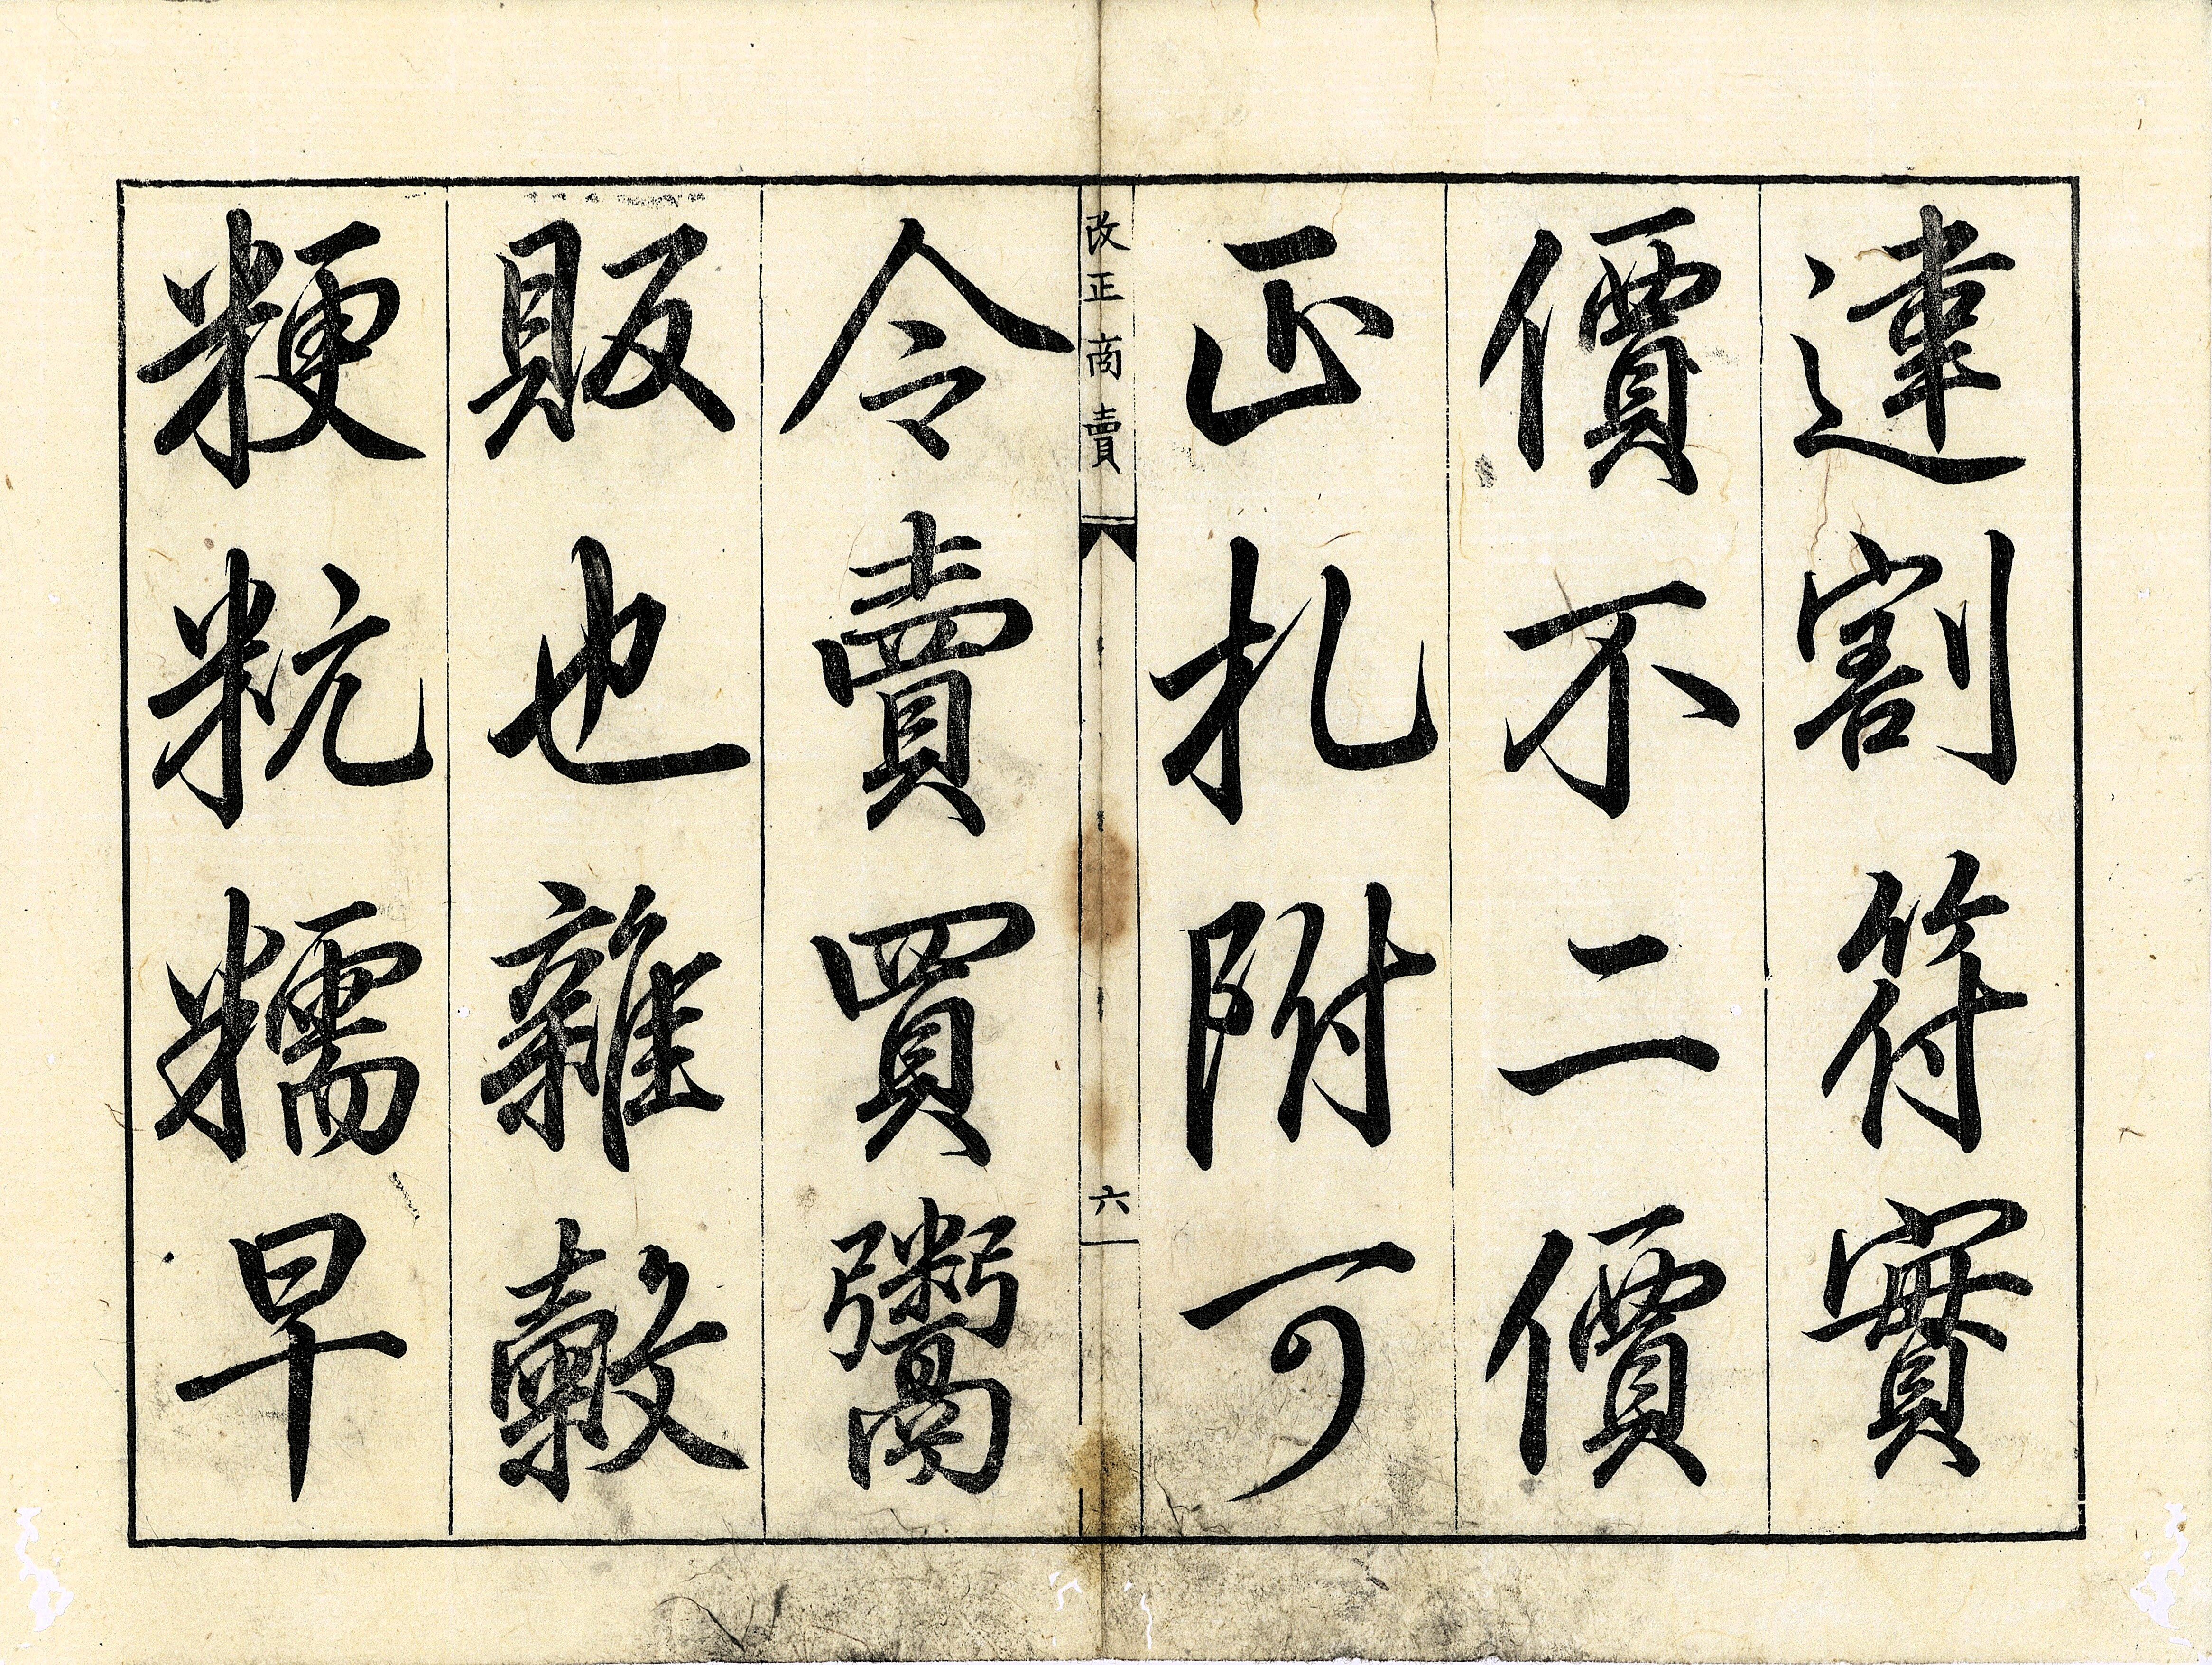 違割符實
價不二價
正札附可
改正商賣
六
令賣買鬻
販也雜穀
粳粇糯早